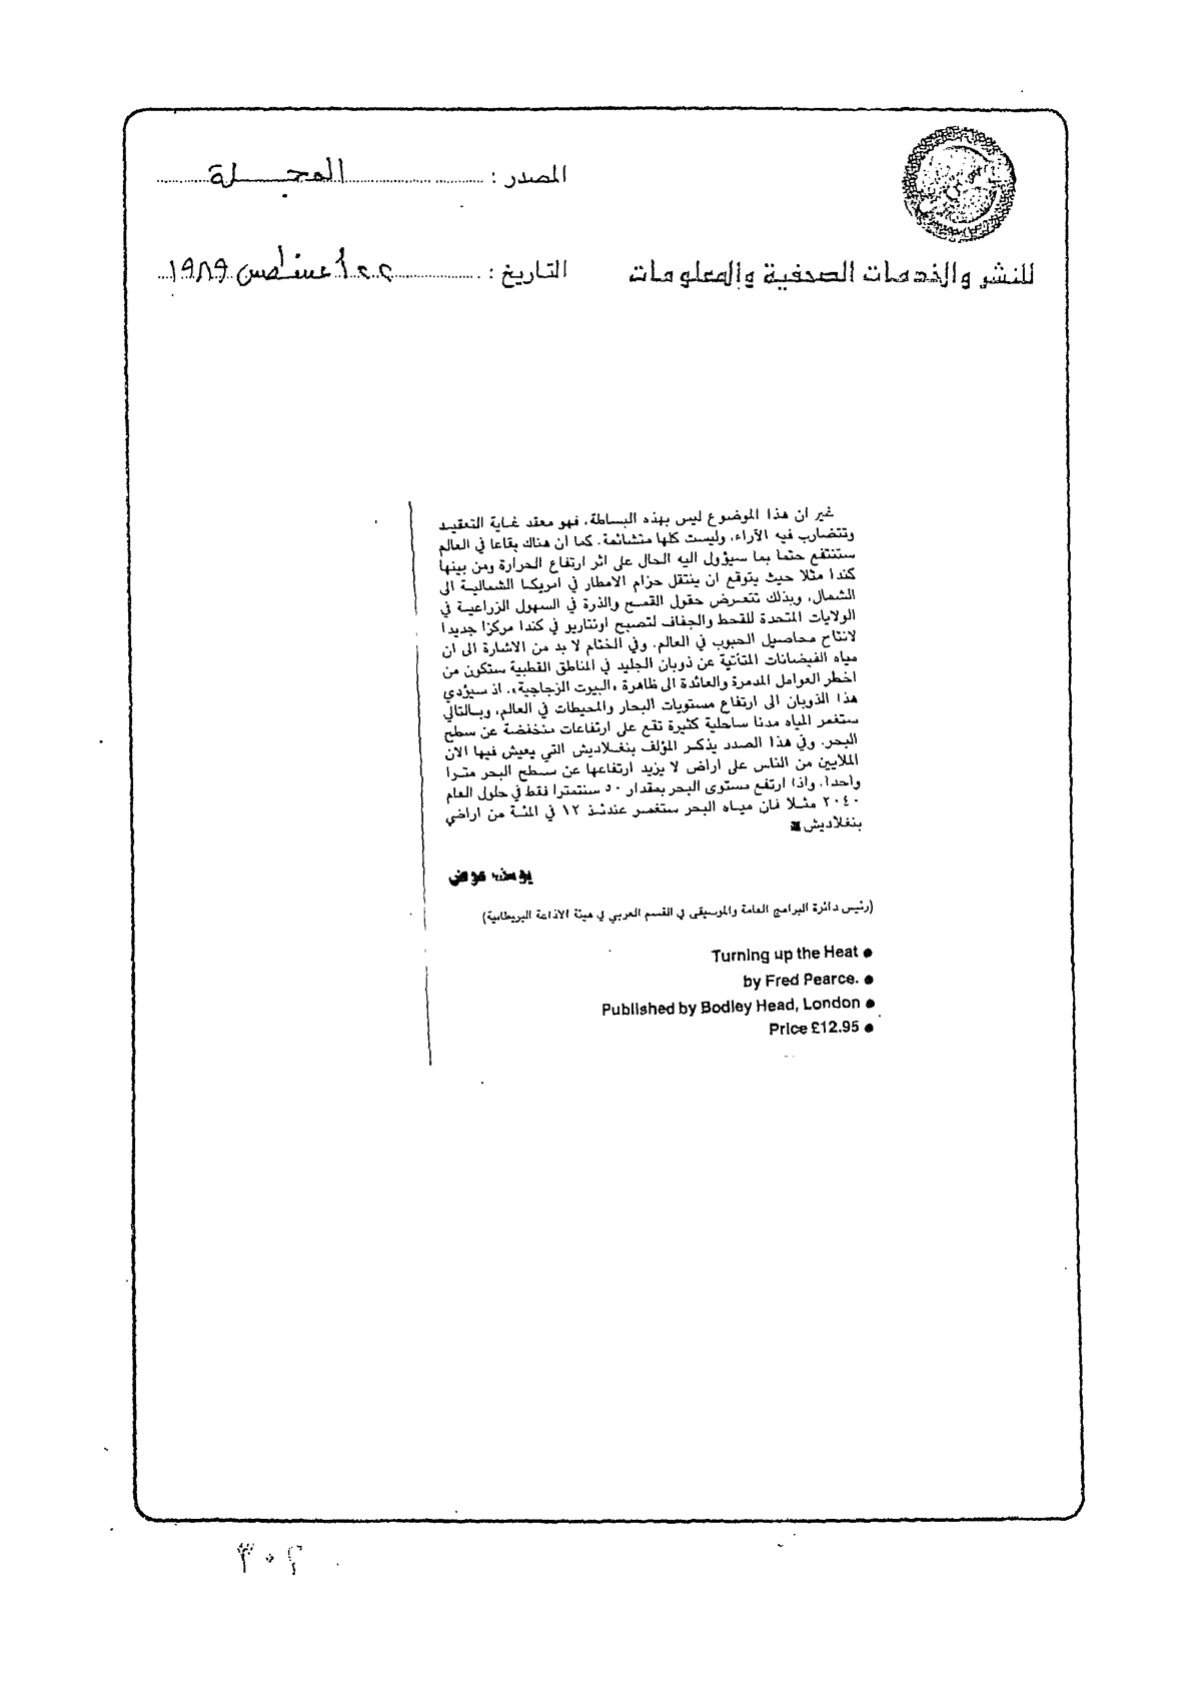 المصدر : المجلة
للنشر والخدمات الصحفية والمعلومات
التاريخ : ٢٢ أغسطس ١٩٨٩
غير ان هذا الموضوع ليس بهذه البساطة، فهو معقد غاية التعقيد
وتتضارب فيه الآراء، وليست كلها متشائمة. كما ان هناك بقاعا في العالم
ستنتفع حتما بما سيؤول اليه الحال على اثر ارتفاع الحرارة ومن بينها
كندا مثلا حيث يتوقع ان ينتقل حزام الامطار في امريكا الشمالية الى
الشمال، وبذلك تتعرض حقول القمح والذرة في السهول الزراعية في
الولايات المتحدة للقحط والجفاف لتصبح اونتاريو في كندا مركزا جديدا
لانتاج محاصيل الحبوب في العالم. وفي الختام لا بد من الاشارة الى ان
مياه الفيضانات المتأتية عن ذوبان الجليد في المناطق القطبية ستكون من
اخطر العوامل المدمرة والعائدة الى ظاهرة «البيوت الزجاجية». اذ سيؤدي
هذا الذوبان الى ارتفاع مستويات البحار والمحيطات في العالم، وبالتالي
ستغمر المياه مدنا ساحلية كثيرة تقع على ارتفاعات منخفضة عن سطح
البحر. وفي هذا الصدد يذكر المؤلف بنغلاديش التي يعيش فيها الان
الملايين من الناس على اراض لا يزيد ارتفاعها عن سطح البحر مترا
واحدا. واذا ارتفع مستوى البحر بمقدار ٥٠ سنتمترا فقط في حلول العام
٢٠٤٠ مثلا فان مياه البحر ستغمر عندئذ ١٢ في المئة من اراضي
بنغلاديش
يوسف عوض
(رئيس دائرة البرامج العامة والموسيقى في القسم العربي في هيئة الاذاعة البريطانية)
Turning up the Heat ●
by Fred Pearce. ●
Published by Bodley Head, London ●
Price £12.95 ●